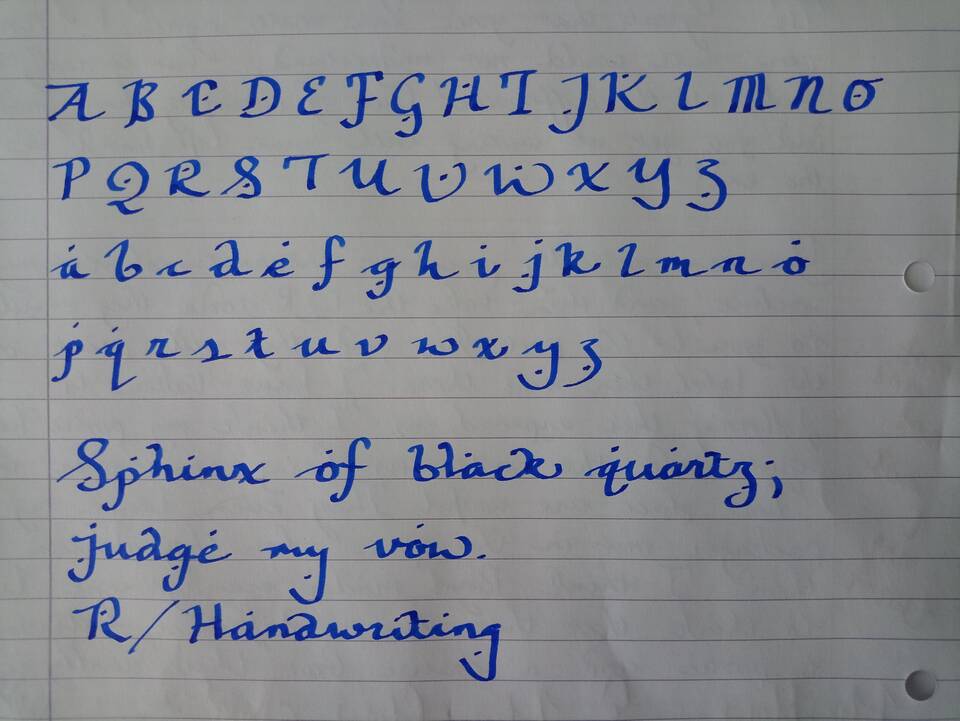 A B C D E F G H I J K L M N O
P Q R S T U V W X Y Z
a b c d e f g h i j k l m n o
p q r s t u v w x y z
Sphinx of black quartz;
judge my vow.
R/Handwriting